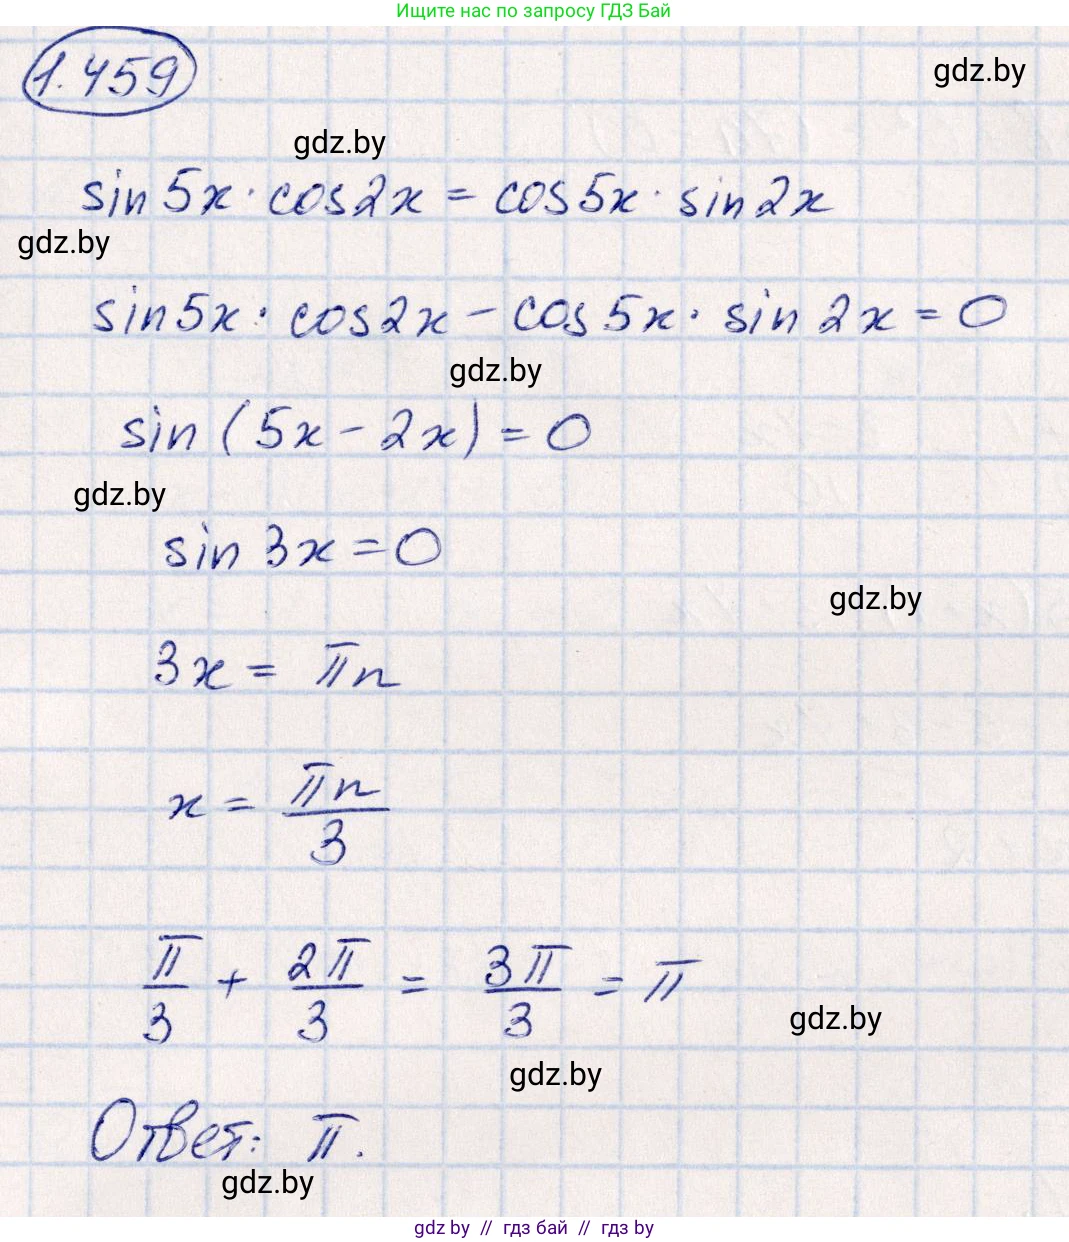 Ищите нас по запросу ГДЗ Бай
1.459
gdz.by
gdz.by
sin 5x · cos 2x = cos 5x · sin 2x
gdz.by
sin 5x · cos 2x - cos 5x · sin 2x = 0
gdz.by
sin (5x - 2x) = 0
gdz.by
sin 3x = 0
gdz.by
3x = πn
x = πn/3
π/3 + 2π/3 = 3π/3 = π
gdz.by
gdz.by
Ответ: π.
gdz.by
gdz by // гдз бай // гдз by